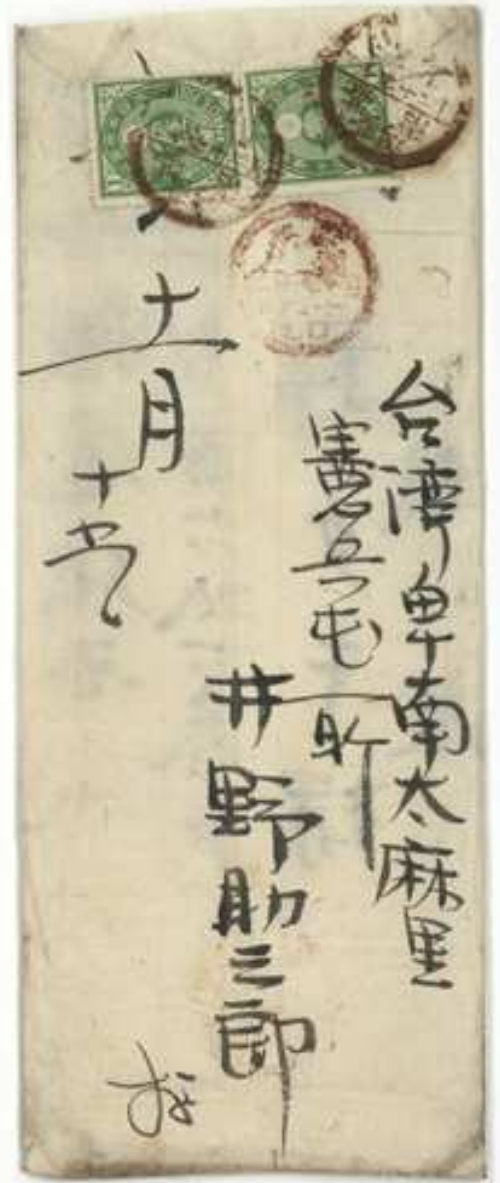 台湾卑南太麻里
憲兵屯所
井野助三郎
十一月
十